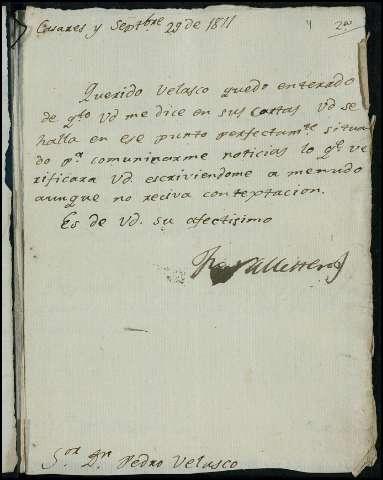 Casares y Septbre 29 de 1811
2ª
Querido Velasco quedo enterado
de qto Vd me dice en sus Cartas Vd se
halla en ese punto perfectamte situa
do pª comuninarme noticias lo qe ve
rificara Vd. escriviendome a menudo
aunque no reciva contextacion.
Es de Vd. su afectisimo
Sor Dn Pedro Velasco